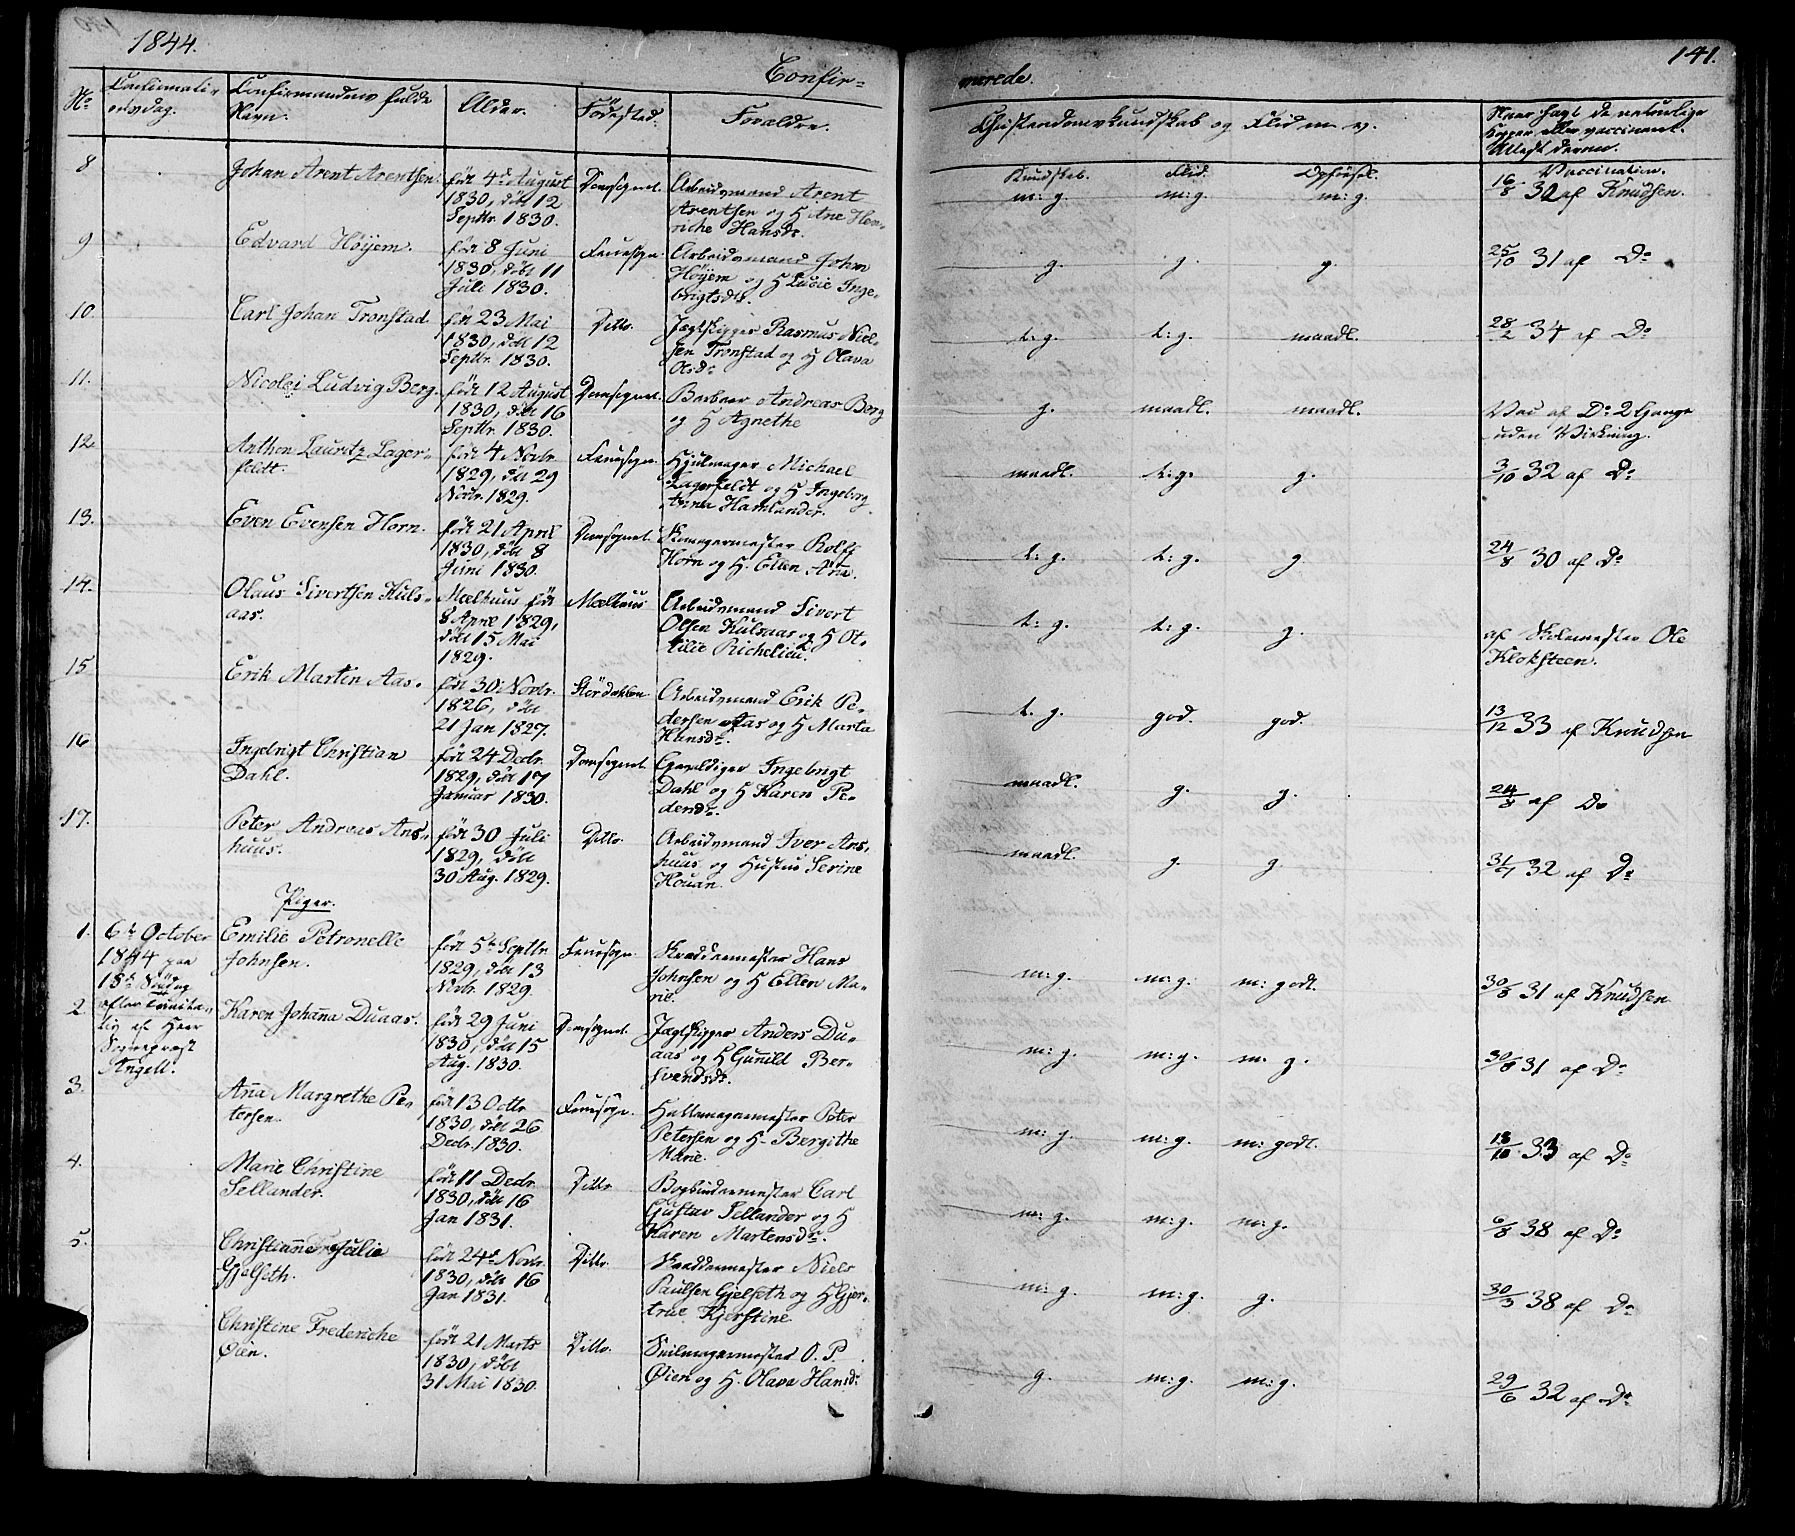 1844.
Confir-
merede.
141.
No
Confirmati-
onsdag.
Confirmandens fulde
Navn.
Alder.
Födested.
Forældre.
Christendomskundskab og Flid m. v.
Naar havt de naturlige
Kopper eller vaccineret.
Attest derom.
Kundskab. Flid. Opförsel.
Vaccination.
8
Johan Arent Arentsen.
föd 4de August
1830, döbt 12
Septbr. 1830.
Domsognet.
Arbeidsmand Arent
Arentsen og H Ane Hen-
riche Hansdr.
m: g. m: g. m: g.
16/8 30 af Knudsen.
9
Edvard Höyem.
föd 8 Juni
1830, döbt 11
Juli 1830.
Fruesogn.
Arbeidsmand John
Höyem og H Lucie Inge-
brigtsdr.
g. g. g.
25/10 31 af Do
10
Carl Johan Tronstad
föd 23 Mai
1830, döbt 12
Septbr. 1830.
Ditto.
Jagtskipper Rasmus Niel-
sen Tronstad og H Olava
Olsdr
t: g. t: g. maadl.
28/2 34 af Do
11.
Nicolai Ludvig Berg.
födt 12 August
1830, döbt 16
Septbr. 1830.
Domsognet.
Barbeer Andreas Berg
og H Agnethe
g. maadl. maadl.
Vac af Do 2 Gange
uden Virkning.
12.
Anthon Lauritz Lager-
feldt.
födt 4 Novbr.
1829, döbt 29
Novbr. 1829.
Fruesogn.
Hjulmager Michael
Lagerfeldt og H Ingeborg
Anna Hamlander.
maadl. t: g. g.
3/10 32 af Do
13.
Even Evensen Horn.
födt 21 April
1830, döbt 8
Juni 1830.
Domsognet.
Skomagermester Rolff
Horn og H. Ellen Anna.
t: g. t: g. g.
24/8 30 af Do
14.
Olaus Sivertsen Kuls-
aas.
Mælhuus födt
8 April 1829,
döbt 15 Mai
1829.
Mælhuus
Arbeidsmand Sivert
Olsen Kulsaas og H Ot-
tilie Richelieu.
t: g. t: g. g.
af Skolemester Ole
Kloksteen.
15
Erik Martin Aas.
födt 30 Novbr.
1826, döbt
21 Jan 1827.
Störدalen
Arbeidsmand Erik Pe-
dersen Aas og H Marta
Hansdr.
t. g. god. god.
13/12 33 af Knudsen
16
Ingebrigt Christian
Dahl.
födt 24 Decbr.
1829, döbt 17
Januar 1830.
Domsognet.
Ingebrigt
Dahl og H Karen Pe-
dersdr.
maadl. g. g.
24/8 af Do
17.
Peter Andreas Ans-
huus.
födt 30 Juli
1829, döbt
30 Aug. 1829.
Ditto.
Arbeidsmand Iver Ans-
huus og Hustru Serine
Houan.
maadl. g g.
32 af Do
Piger.
1.
6te October
1844 paa
18de Söndag
efter Trinita-
tis af Herr
Sognepræst
Angell.
Emilie Petronelle
Johnsen.
födt 5te Septbr.
1829, döbt 13
Novbr. 1829.
Fruesogn.
Skræddermester Hans
Johnsen og H Ellen Ma-
rie.
m: g. m: g. m: godt.
30/8 31 af Knudsen
2.
Karen Johanna Duaas.
födt 29 Juni
1830, döbt 15
Aug. 1830.
Domsognet.
Jagtskipper Anders Du-
aas og H Gunild Ber-
svendsdr.
m: g. m: g. m: g.
30/8 31 af Do
3.
Anna Margrethe Pe-
tersen.
födt 13 Octbr.
1830, döbt 26
Decbr. 1830.
Fruesogn.
Hattemagermester Peter
Petersen og H. Bergithe
Marie.
m: g. m: g. m: godt.
18/10 33 af Do
4.
Marie Christine
Sellander.
födt 11 Decbr.
1830, döbt 16
Jan 1831.
Ditto
Bogbindermester Carl
Gustav Sellander og H
Karen Martensdr.
m: g. m: g. m: g.
6/8 38 af Do
5.
Christianne
Gjelseth.
födt 24de Novbr.
1830, döbt 16
Jan 1831.
Ditto.
Skræddermester Niels
Paulsen Gjelseth og H Gjer-
true Kjerstine
m: g. m: g. g.
30/3 38 af Do
Christine Frederiche
Öien.
födt 21 Marts
1830, döbt
31 Mai 1830.
Ditto.
Seilmagermester O. P.
Öien og H. Olava Hansdr
g. m: g. m: g.
29/6 32 af Do